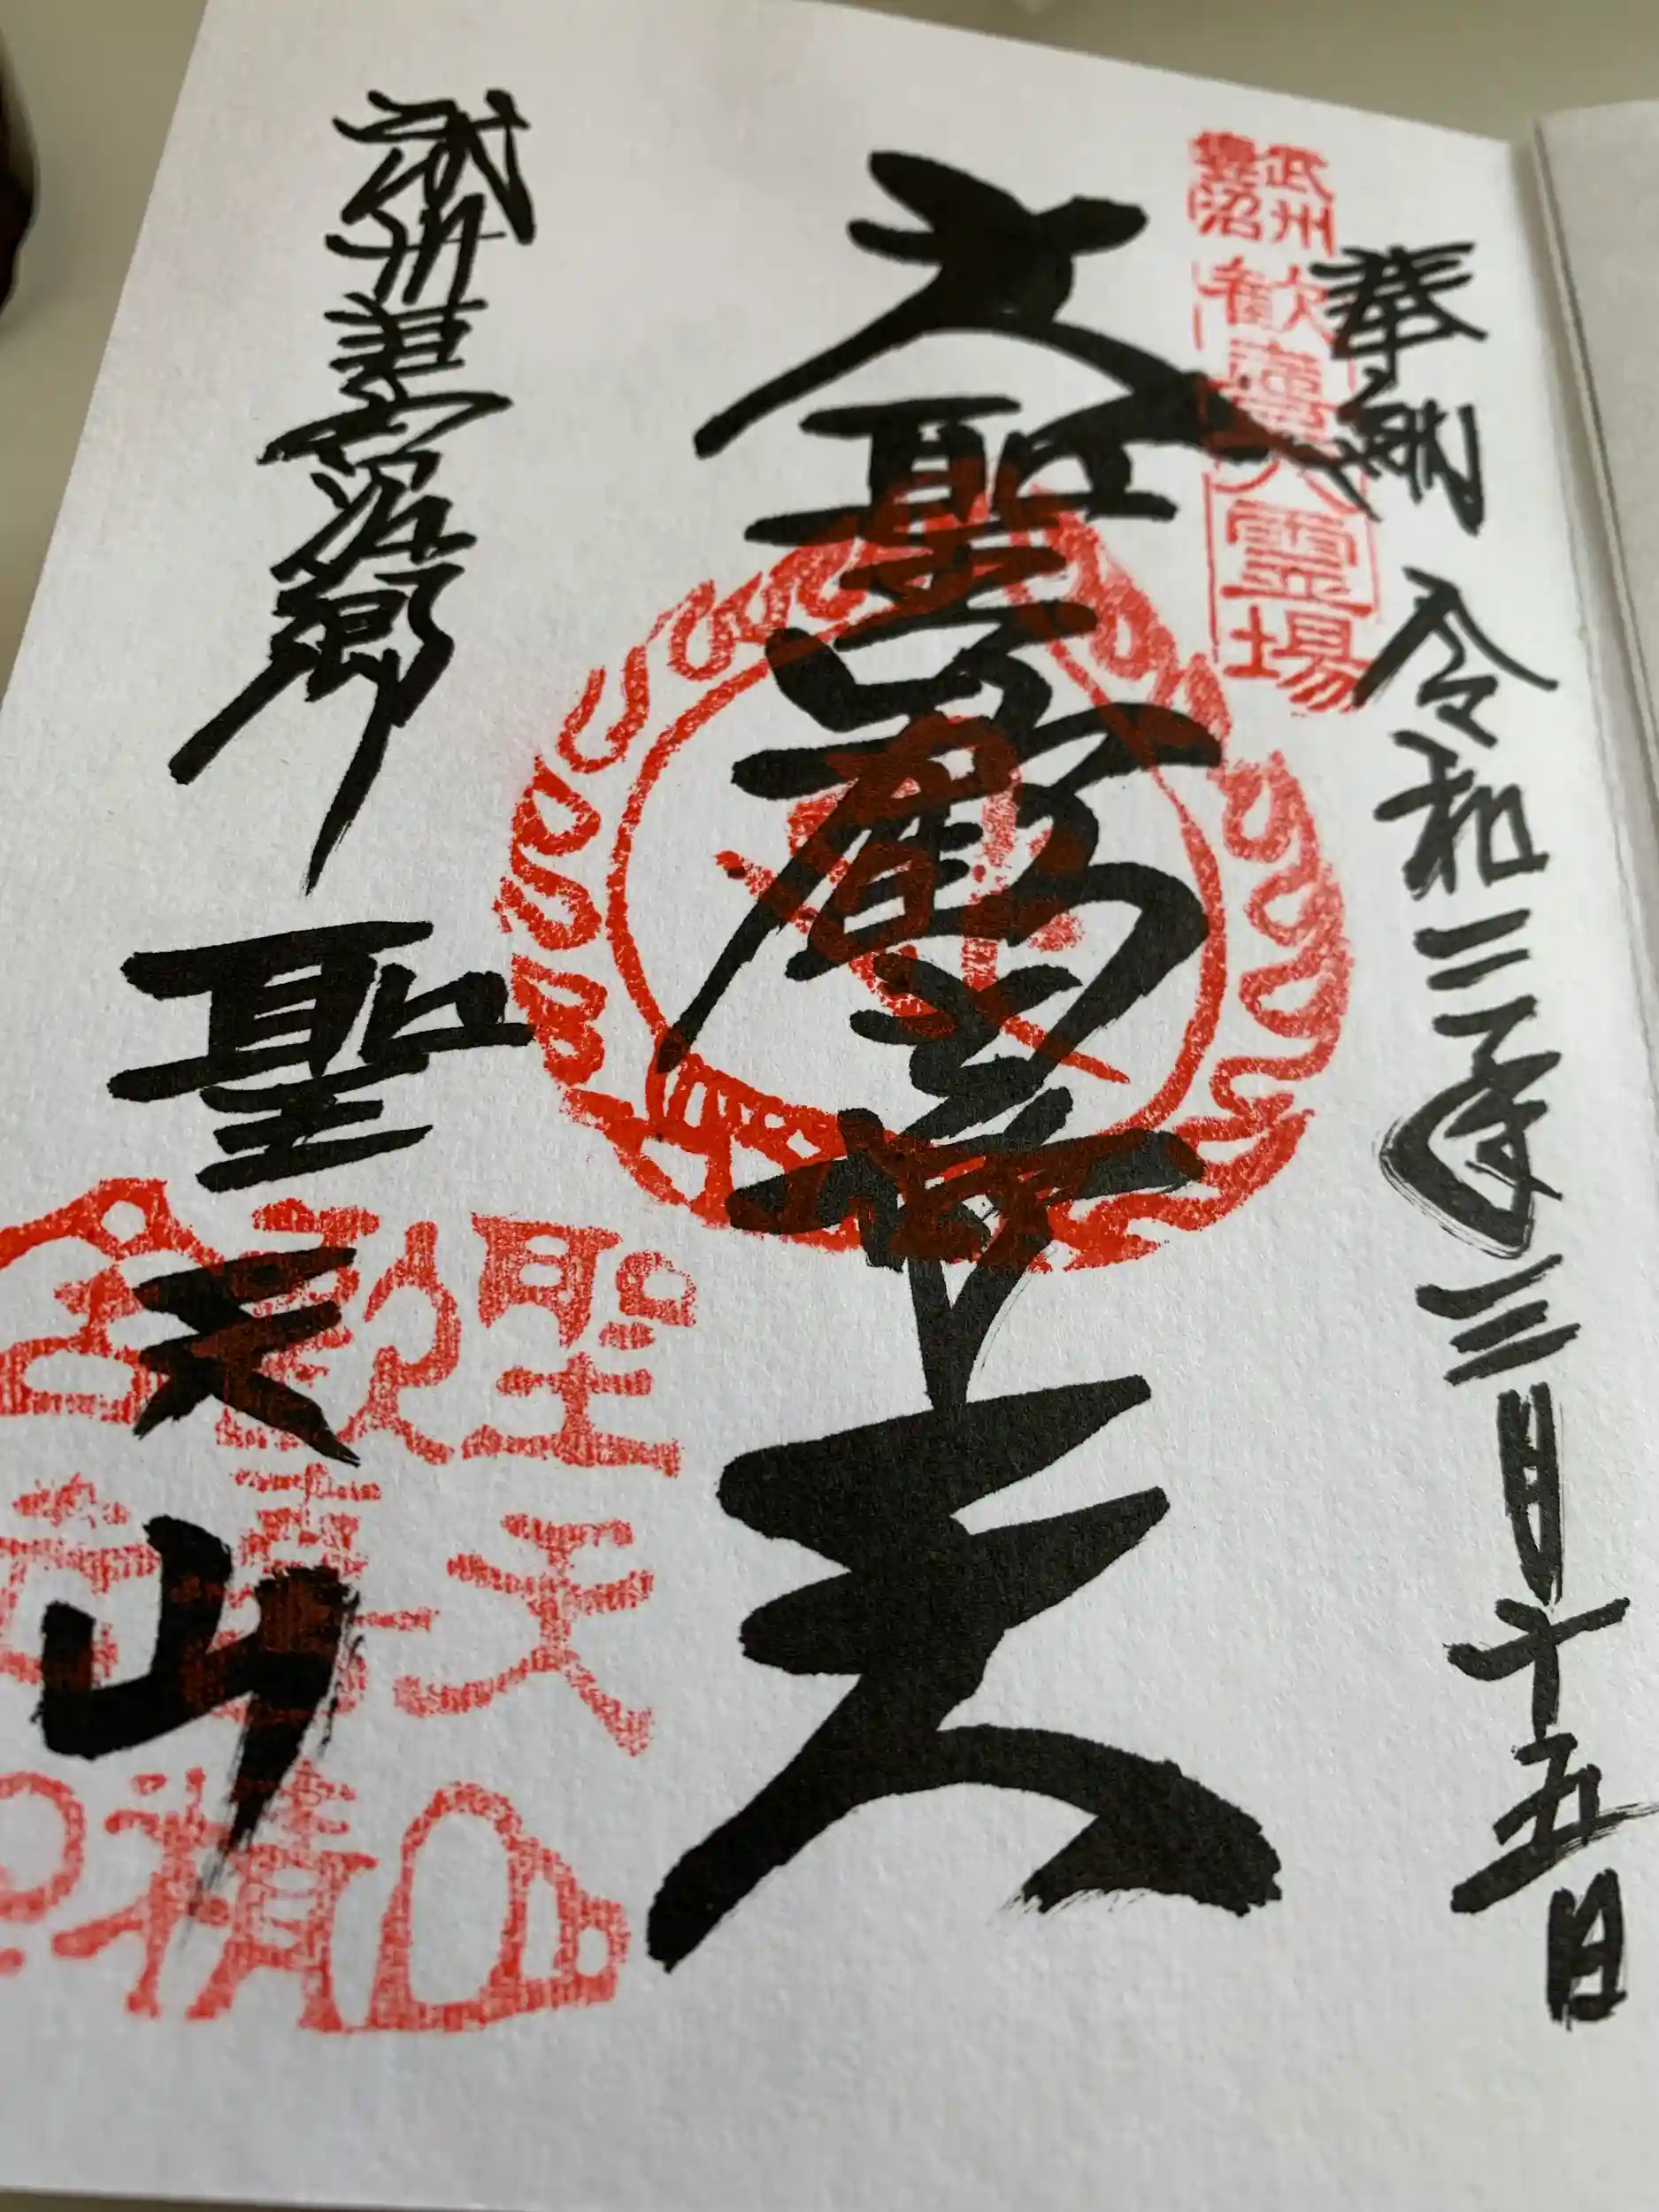 奉納 令和三年三月十五日
武州
妻沼
歓喜天霊場
大聖歓喜天
武州妻沼郷 聖天山
聖天山